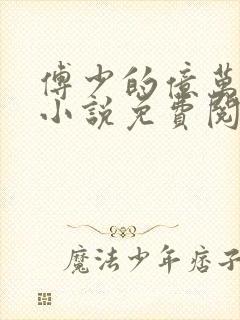 傅少的億萬
小説免費閱
魔法少年痞子